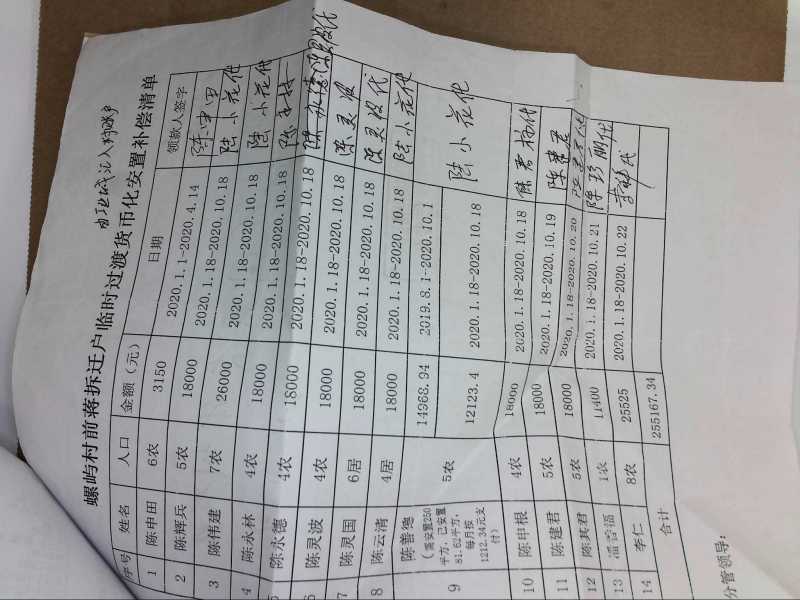 由现成汇入到账户
螺屿村前蒋拆迁户临时过渡货币化安置补偿清单
序号 姓名 人口 金额（元） 日期 领款人签字
1 陈申田 6农 3150 2020.1.1-2020.4.14 陈申田
2 陈辉兵 5农 18000 2020.1.18-2020.10.18 陆小花代
3 陈伟建 7农 26000 2020.1.18-2020.10.18 陆小花代
4 陈永林 4农 18000 2020.1.18-2020.10.18 陈永林
5 陈永德 4农 18000 2020.1.18-2020.10.18 陈永德 陈灵波代
6 陈灵波 4农 18000 2020.1.18-2020.10.18 陈灵波
7 陈灵国 6居 18000 2020.1.18-2020.10.18 陈灵波代
8 陈云清 4居 18000 2020.1.18-2020.10.18 陆小花代
9 陈善德 5农 14968.94 2019.8.1-2020.10.1 陆小花代
（需安置250
平方，已安置
81.62平方，
每月按
1212.34元支
付） 12123.4 2020.1.18-2020.10.18
10 陈申根 4农 18000 2020.1.18-2020.10.18
11 陈建君 5农 18000 2020.1.18-2020.10.19 陈建君
12 陈其君 5农 18000 2020.1.18-2020.10.20
13 潘香福 1农 11400 2020.1.18-2020.10.21 陈珍鹏代
14 李仁 8农 25525 2020.1.18-2020.10.22
合计 255167.34
分管领导：